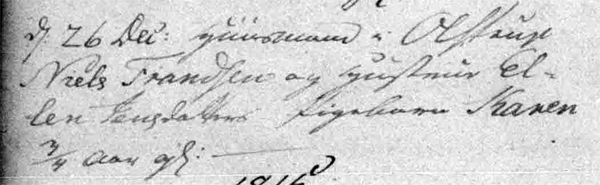 d: 26 Dec: Huusmand i Olstrup
Niels Frandsen og Hustrue El-
len Jensdatters Pigebarn Karen
3/4 Aar gl: